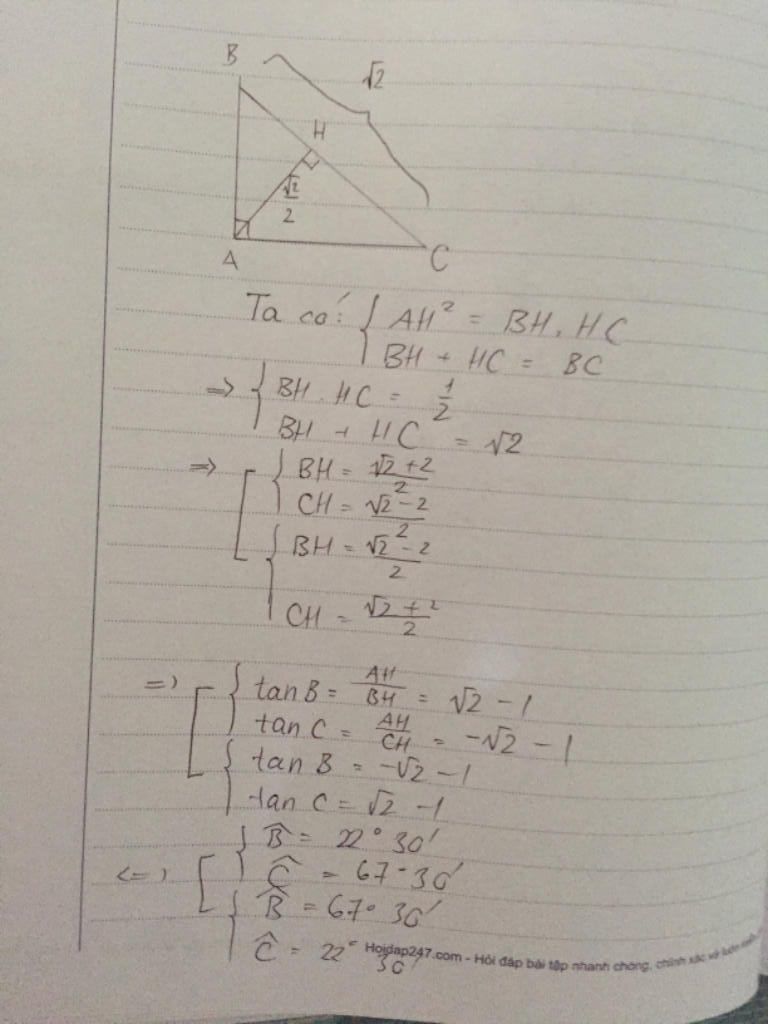 B
√2
H
√2/2
A
C
Ta có: { AH² = BH . HC
BH + HC = BC
=> { BH . HC = 1/2
BH + HC = √2
=> [ { BH = (√2 + 2)/2
CH = (√2 - 2)/2
{ BH = (√2 - 2)/2
CH = (√2 + 2)/2
=> [ { tan B = AH/BH = √2 - 1
tan C = AH/CH = -√2 - 1
{ tan B = -√2 - 1
tan C = √2 - 1
<=> [ { B̂ = 22° 30'
Ĉ = 67° 30'
{ B̂ = 67° 30'
Ĉ = 22° 30'
Hoidap247.com - Hỏi đáp bài tập nhanh chóng, chính xác